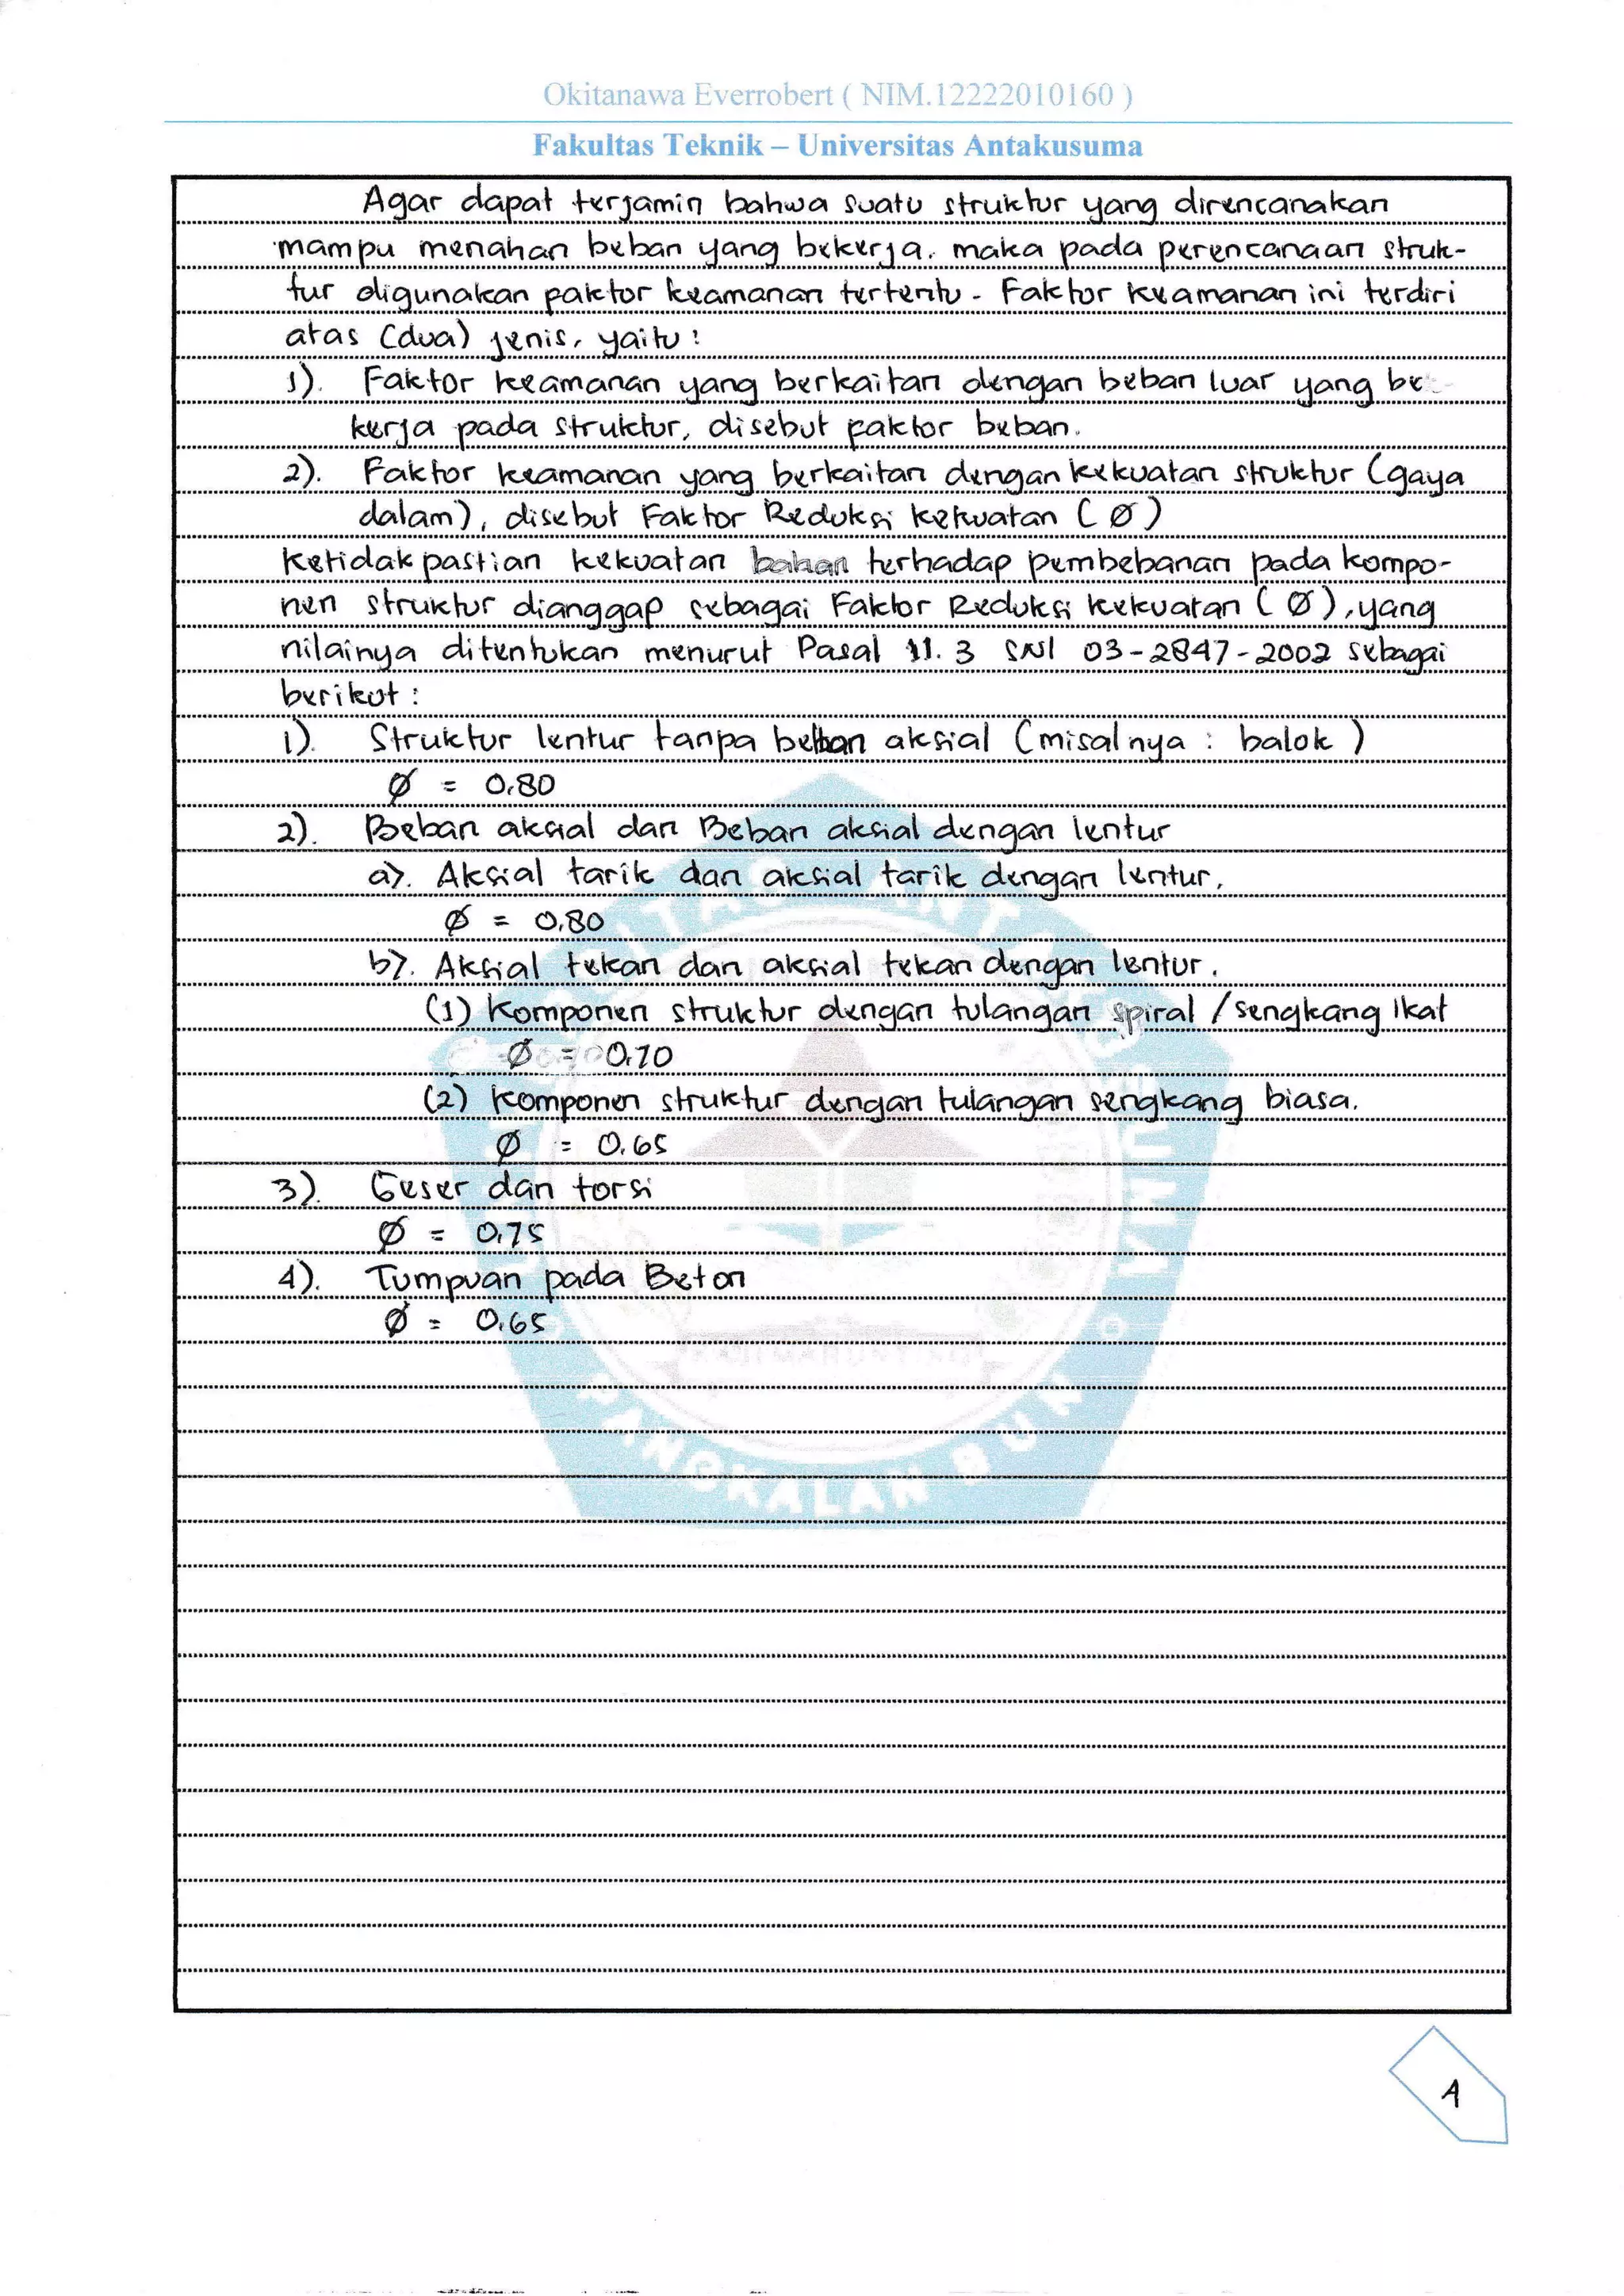 Okitanawa Everrobert ( NIM.12222010160 )
Fakultas Teknik – Universitas Antakusuma
Agar dapat terjamin bahwa suatu struktur yang direncanakan
mampu menahan beban yang bekerja. maka pada perencanaan struk-
tur digunakan paktor keamanan tertentu. Faktor keamanan ini terdiri
atas (dua) jenis, yaitu :
1). Faktor keamanan yang berkaitan dengan beban luar yang be
kerja pada struktur, disebut paktor beban.
2). Faktor keamanan yang berkaitan dengan kekuatan struktur (gaya
dalam), disebut Faktor Reduksi kekuatan ( Ø )
Ketidak pastian kekuatan bahan terhadap pembebanan pada kompo-
nen struktur dianggap sebagai Faktor Reduksi kekuatan ( Ø ), yang
nilainya ditentukan menurut Pasal 11. 3 SNI 03-2847-2002 sebagai
berikut :
1). Struktur lentur tanpa beban aksial (misalnya : balok )
Ø = 0,80
2). Beban aksial dan Beban aksial dengan lentur
a). Aksial tarik dan aksial tarik dengan lentur,
Ø = 0,80
b). Aksial tekan dan aksial tekan dengan lentur.
(1) Komponen struktur dengan tulangan spiral / sengkang ikat
Ø = 0,70
(2) komponen struktur dengan tulangan sengkang biasa.
Ø = 0,65
3). Geser dan torsi
Ø = 0,75
4). Tumpuan pada Beton
Ø = 0,65
UNIVERSITAS ANTAKUSUMA
PANGKALAN BUN
4